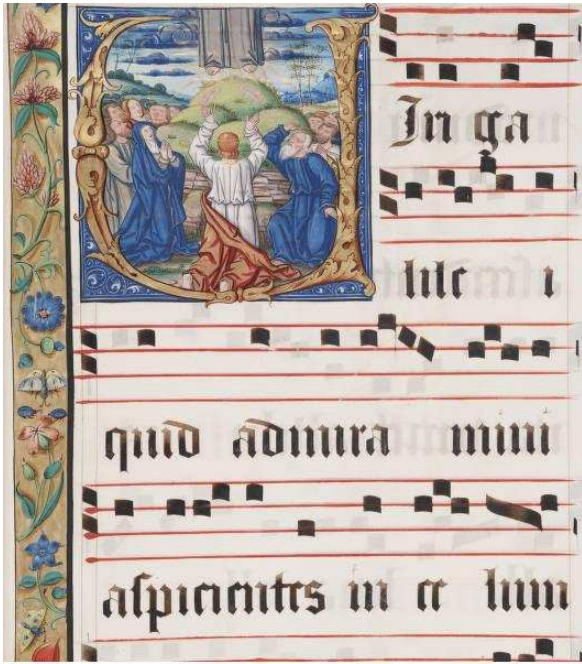 VIri ga
lile i
quid admira mini
aſpicientes in ce lum